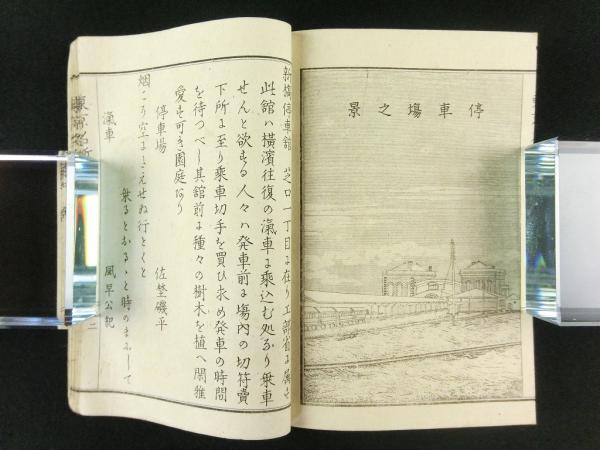 停車塲之景
新橋停車舘　芝口一丁目に在り工部省に属す
此舘ハ横濱往復の滊車に乘込む処なり乗車
せんと欲する人々ハ発車前に塲内の切符賣
下所に至り乗車切手を買ひ求め発車の時間
を待つべし其舘前に種々の樹木を植へ閑雅
愛す可き園庭なり
停車場　佐々磯平
烟こそ空にきえせぬ行とくと
乗るとおると時のまにして
滊車　風早公紀
二
東京名所